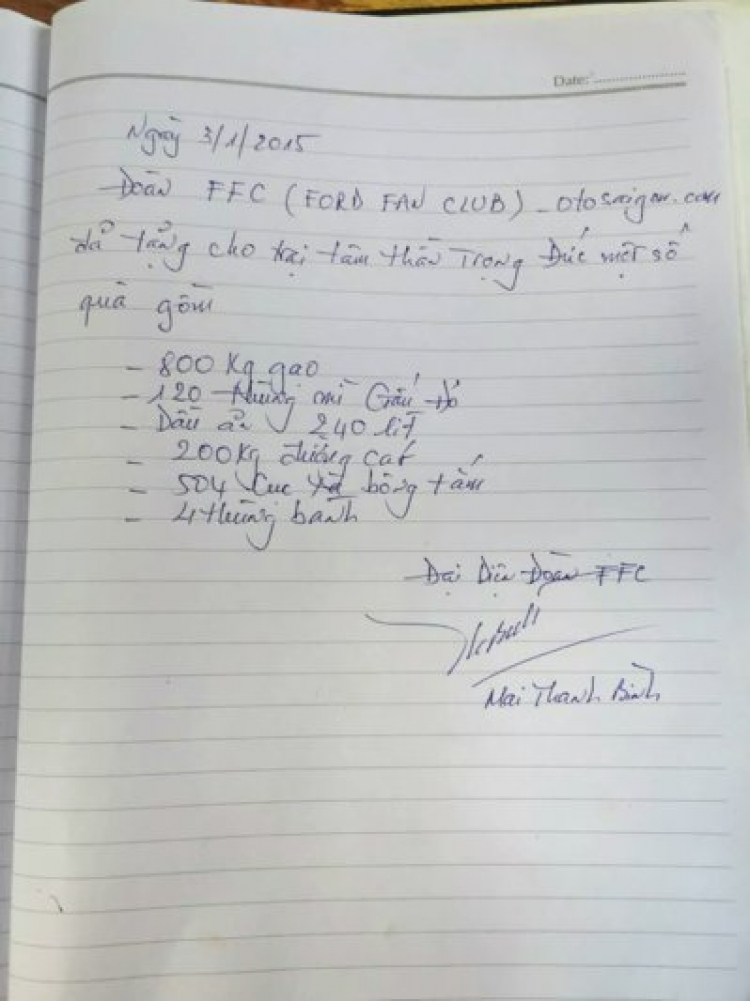 Date:
Ngày 3/1/2015
Đoàn FFC (FORD FAN CLUB) - otosaigon.com
đả tặng cho trại tâm thần Trọng Đức một số
quà gồm
- 800 Kg gao
- 120 thùng mì Gấu đỏ
- Dầu ăn 240 lít
- 200Kg đường cát
- 504 Cục xà bông tắm
- 4 thùng bánh
Đại Diện Đoàn FFC
Mai Thanh Bình